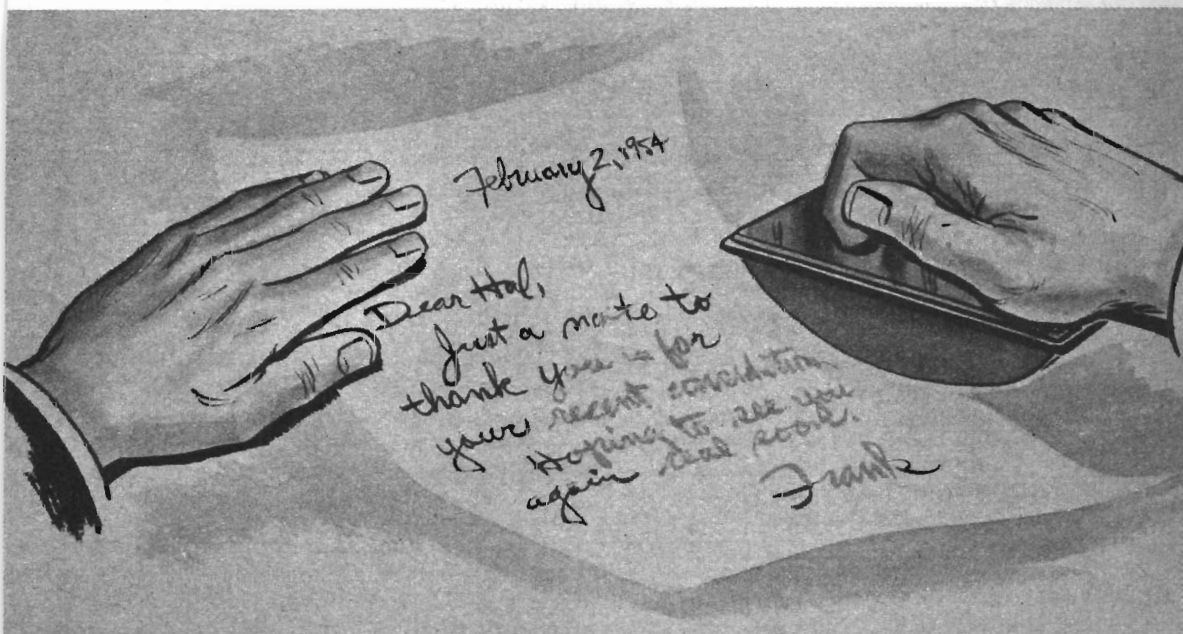 February 2, 1954
Dear Hal,
Just a note to
thank you – for
your recent consideration
Hoping to see you
again real soon.
Frank